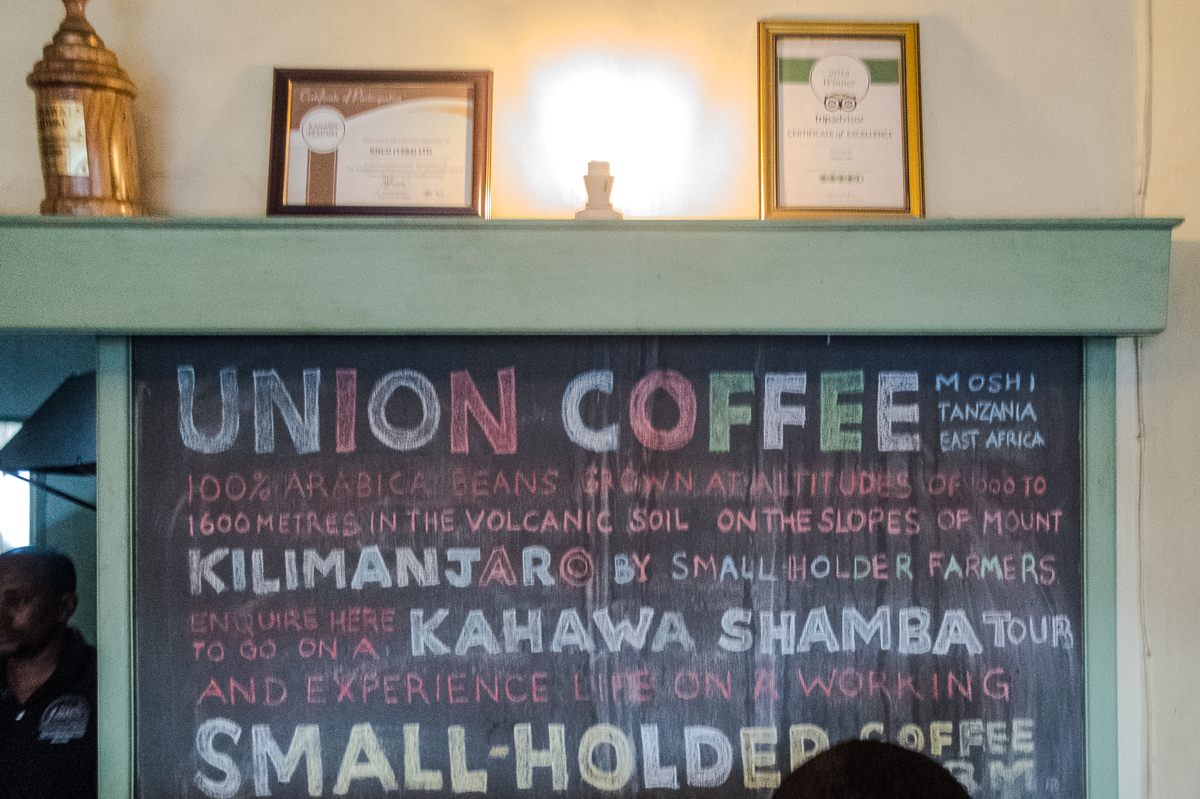 Certificate of Participation
KAHAWA FESTIVAL
KNCU (1984) LTD
2013
Winner
tripadvisor
CERTIFICATE of EXCELLENCE
UNION COFFEE
MOSHI
TANZANIA
EAST AFRICA
100% ARABICA BEANS GROWN AT ALTITUDES OF 000 TO
1600 METRES IN THE VOLCANIC SOIL ON THE SLOPES OF MOUNT
KILIMANJARO BY SMALL HOLDER FARMERS.
ENQUIRE HERE
TO GO ON A KAHAWA SHAMBA TOUR
AND EXPERIENCE LIFE ON A WORKING
SMALL-HOLDER COFFEE